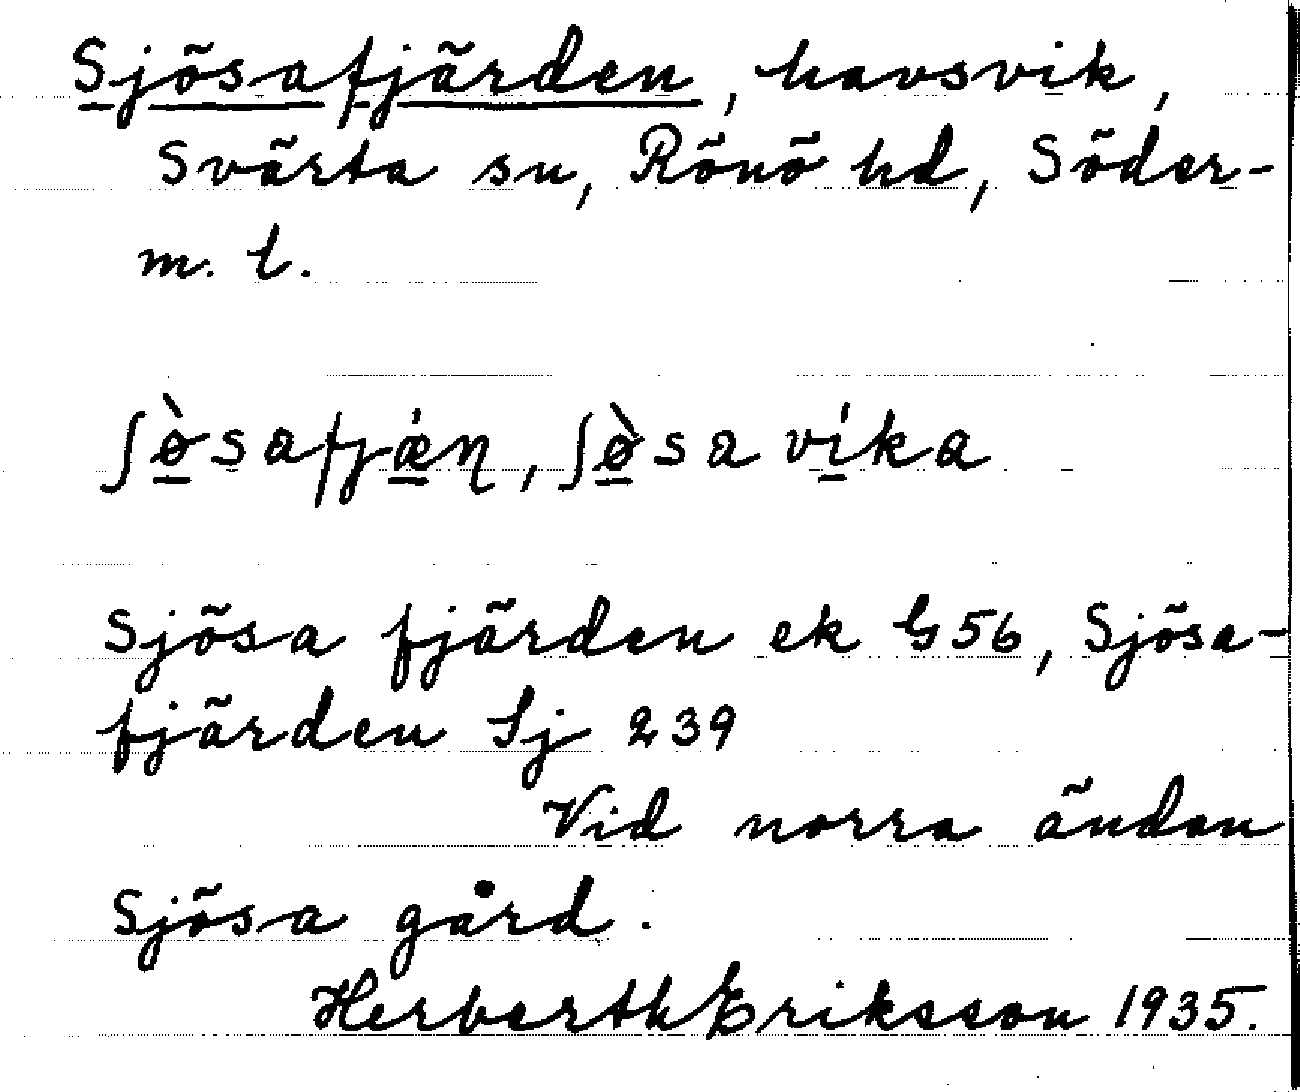 Sjösafjärden, havsvik,
Svärta sn, Rönö hd, Söder-
m. l.
ʃø̀safjǽɳ, ʃø̀savíka
Sjösa fjärden ek G56, Sjösa-
fjärden Sj 239
Vid norra ändan
Sjösa gård.
Herberth Eriksson 1935.